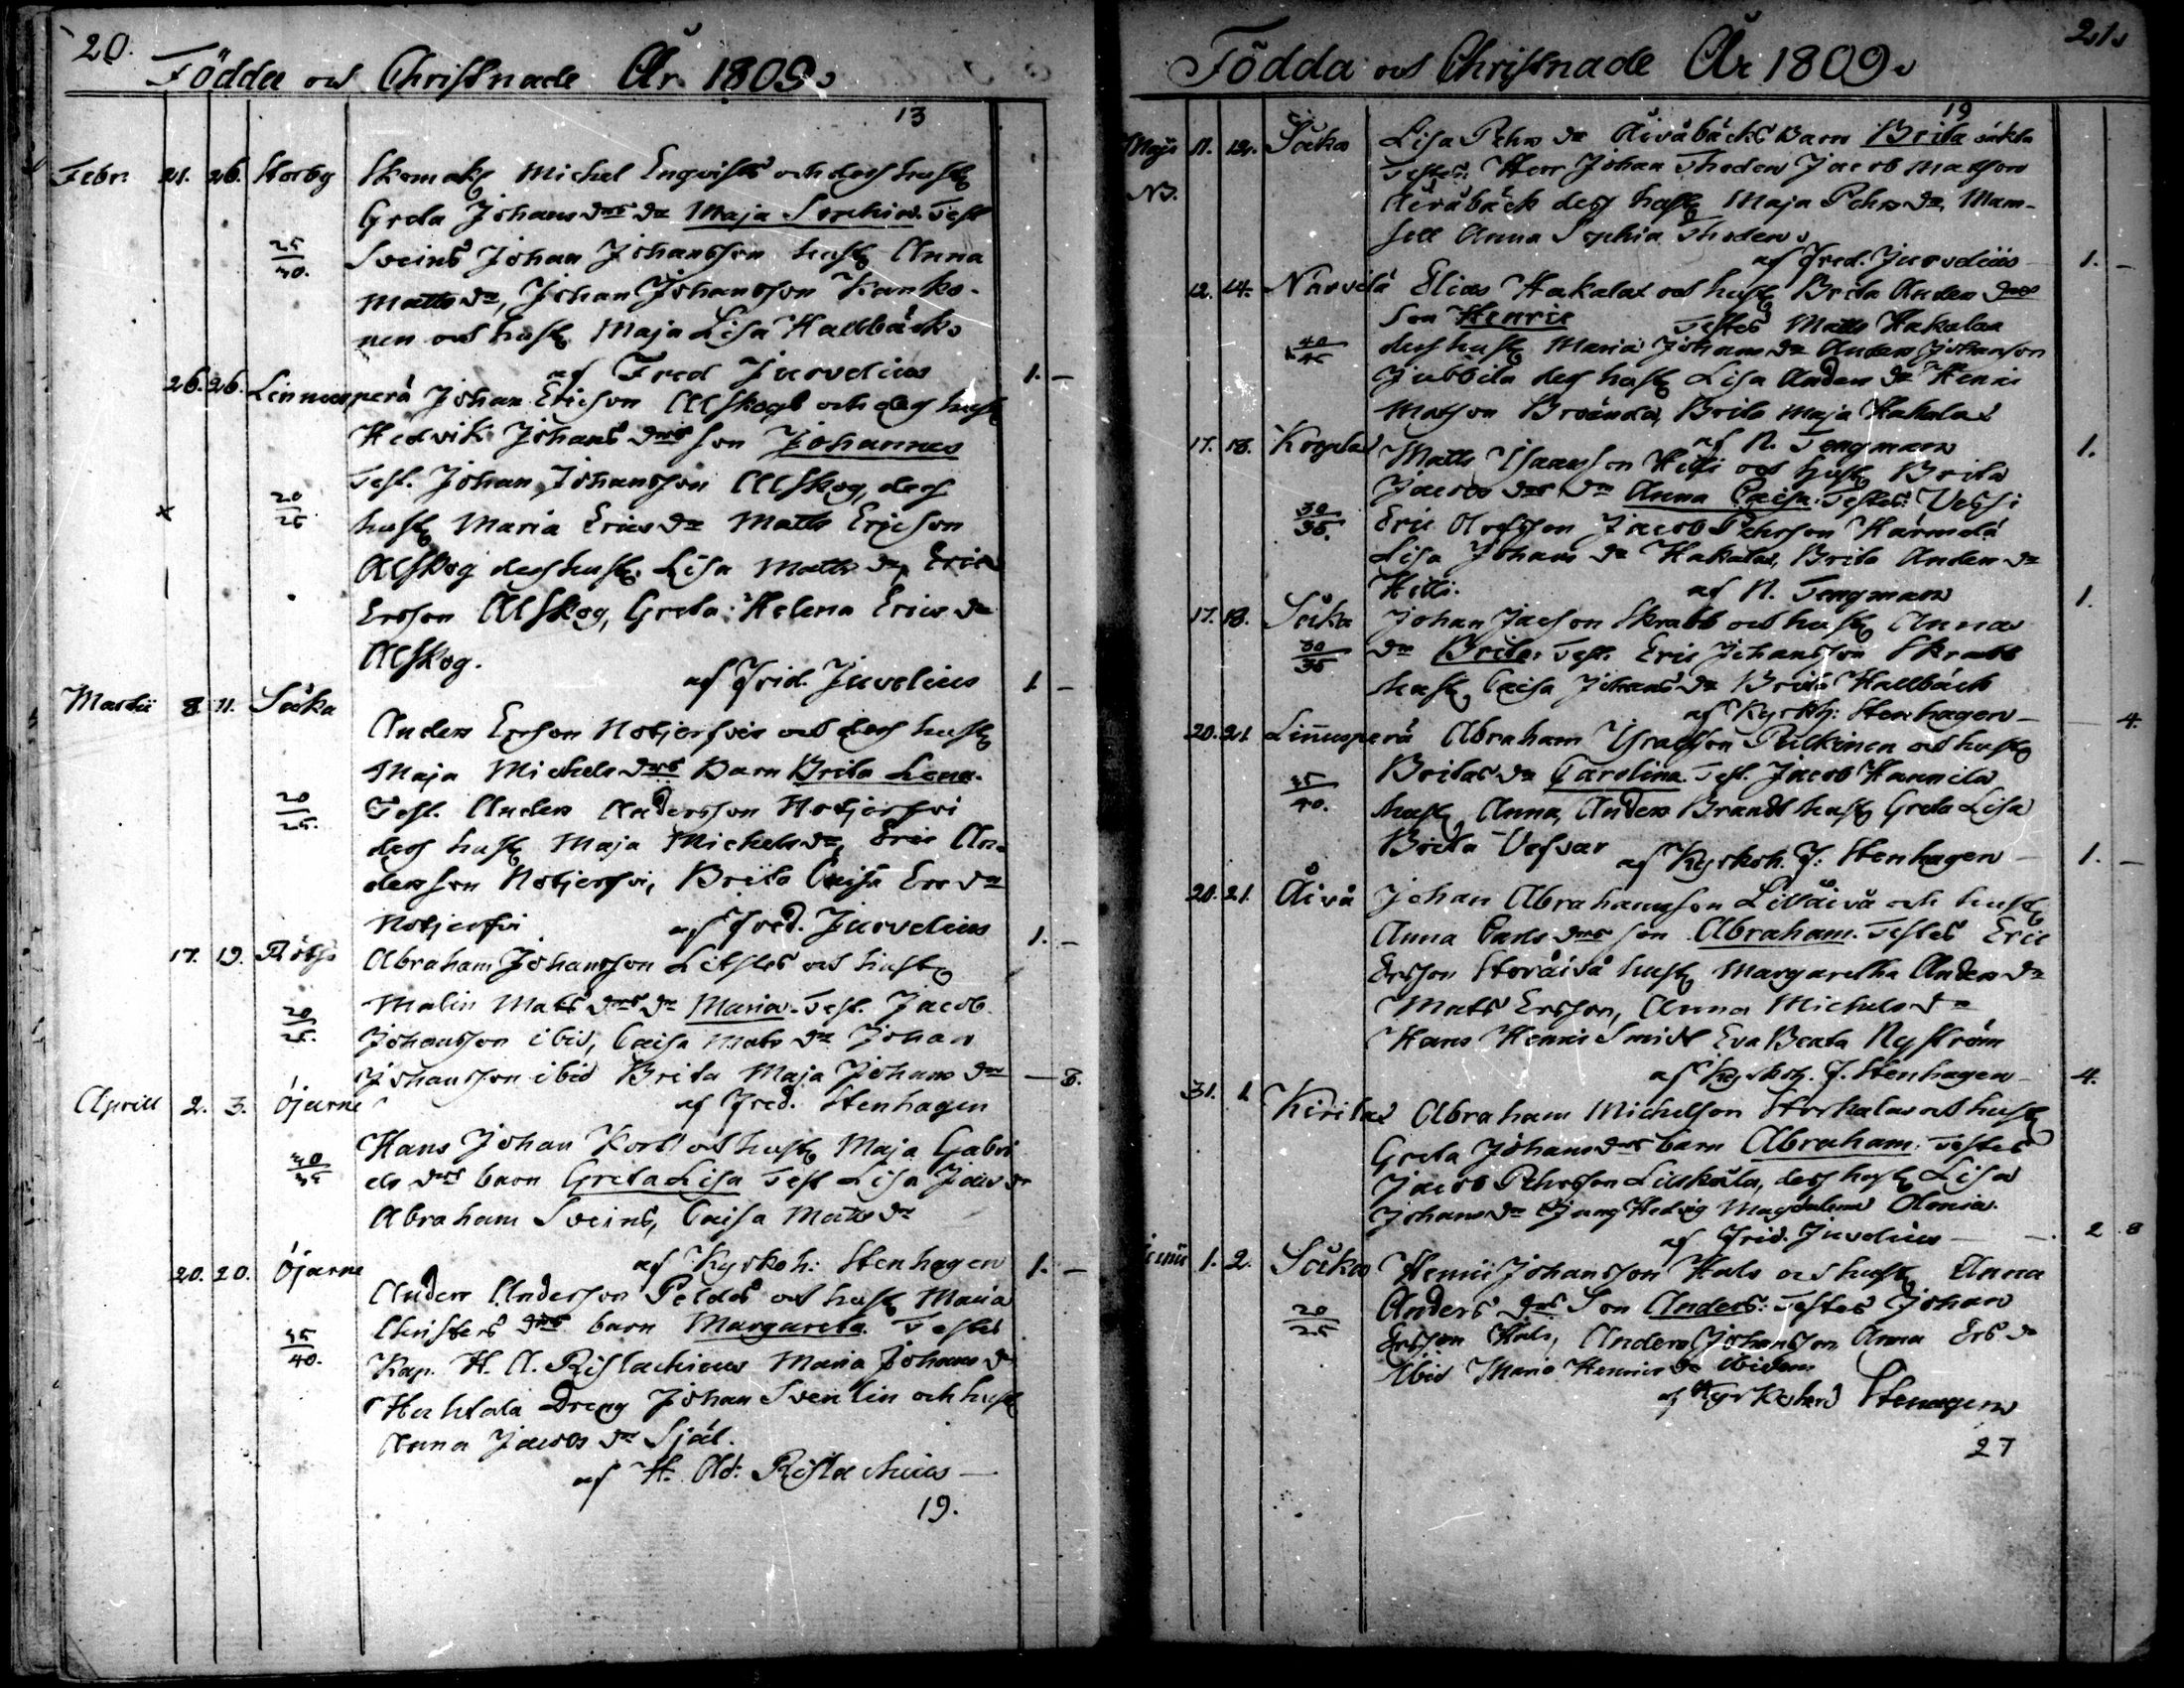 20.
Födda och Christnade År 1809.
13
Febr. 21. 26. Storby Skomak. Michel Enqvists och dess hust.
Greta Johans drs dr Maja Sophia. Test.
25/30. Sveins Johan Johansson hust. Anna
Matts dr, Johan Johansson Kanko-
nen och hust. Maja Lisa Hallbäck
af Fred Juvelius 1. –
26. 26. Linnunperä Johan Ericson Alskog och dess hust.
Hedvik Johans drs son Johannes
Test. Johan Johansson Alskog, dess
x 20/25 hust. Maria Erics dr Matts Ericson
Alskog dess hust. Lisa Matts dr, Eric
Ersson Alskog, Greta Helena Erics dr
Alskog.
af Frid. Juvelius 1 –
Martii 8. 11. Såka
Anders Ersson Notjerfvi och dess hust.
Maja Michels drs Barn Brita Lena.
20/25. Test. Anders Andersson Notjerfvi
dess hust. Maja Michels dr, Eric An-
dersson Notjerfvi, Brita Caisa Ers dr
Notjerfvi af Fred. Juvelius 1. –
17. 19. Röyss Abraham Johansson och hust.
Malin Mats drs dr Maria. Test. Jacob
20/25. Johansson ibid, Caisa Mats dr Johan
Johansson ibid Brita Maja Johans dr – 8.
Aprill 2. 3. Öjarne af Fred. Stenhagen
Hans Johan Korb och hust. Maja Gabri
30/35 els drs barn Greta Lisa Test Lisa Jacs dr
Abraham Sveins, Caisa Matts dr
af Kyrkoh: Stenhagen 1. –
20. 20. Öjarne
Anders Andersson Peldos och hust. Maria
Christers drs barn Margareta. Testes
35/40. Kap. H. A. Ristachius Maria Johans dr
Dreng Johan Svenlin och hust
Anna Jacobs dr Själ.
af H. Ad: Ristachius –
19.
21.
Födda och Christnade År 1809.
19
Maji 11. 12. Såka Lisa Pehrs dr Åivåbäcks Barn Brita oäkta
Testes: Herr Johan Thoden Jacob Matsson
NB. Åivåbäck dess hust. Maja Pehrs dr, Mam-
sell Anna Sophia Thoden
af Fred. Juvelius 1. –
12. 14. Närvilä Elias Hakalax och hust. Brita Anders drs
Son Henric Testes Matts Hakalax
40/45 dess hust. Maria Johans dr Anders Johansson
Jubbila dess hust. Lisa Anders dr Henric
Matsson Brända, Brita Maja Hakalax
17. 18. af N. Tengman 1.
Matts Isaacsson Hilli och Hust. Brita
Jacobs drs dr Anna Caisa: Testes:
30/35. Eric Olofsson Jacob Pehrsson Härmälä
Lisa Johans dr Hakalax, Brita Anders dr
Hilli. af N. Tengman 1.
17. 18. Såka Johan Jacsson Skrabb och hust. Anna
30/35 dr Brita: Test. Eric Johansson Skrabb
hust. Caisa Johans dr Brita Hallbäck
af Kyrkh: Stenhagen – 4.
20. 21. Linnunperä Abraham Ysracsson Pulkinen och hust.
Britas dr Carolina. Test. Jacob Hannila
35/40. hust. Anna, Anders Brandt hust. Greta Lisa
Brita
af Kyrkoh. J: Stenhagen – 1. –
20. 21. Åivå Johan Abrahamsson Lillåivå och hust.
Anna Carls drs son Abraham. Testes Eric
Ersson Storåivå hust. Margaretha Anders dr
Mats Ersson, Anna Michels dr
Hans Henric Smidt Eva Beata Nyström
af Kyrkoh. J. Stenhagen – 4.
31. 1 Kirilax Abraham Michelsson Storkalax och hust.
Greta Johans drs barn Abraham. Testes
Jacob Pehrsson Liuskula, dess hust. Lisa
Johans dr Jung Hedvig Magdalena
af Frid. Juvelius – 2 8
Junii 1. 2. Såka Henric Johansson Hals och hust. Anna
Anders drs Son Anders: Testes Johan
20/25 Ersson Hals, Anders Johansson Anna Ers dr
Ibid Maria Henrics dr Ibidem
af Kyrkoherd Stenagen
27